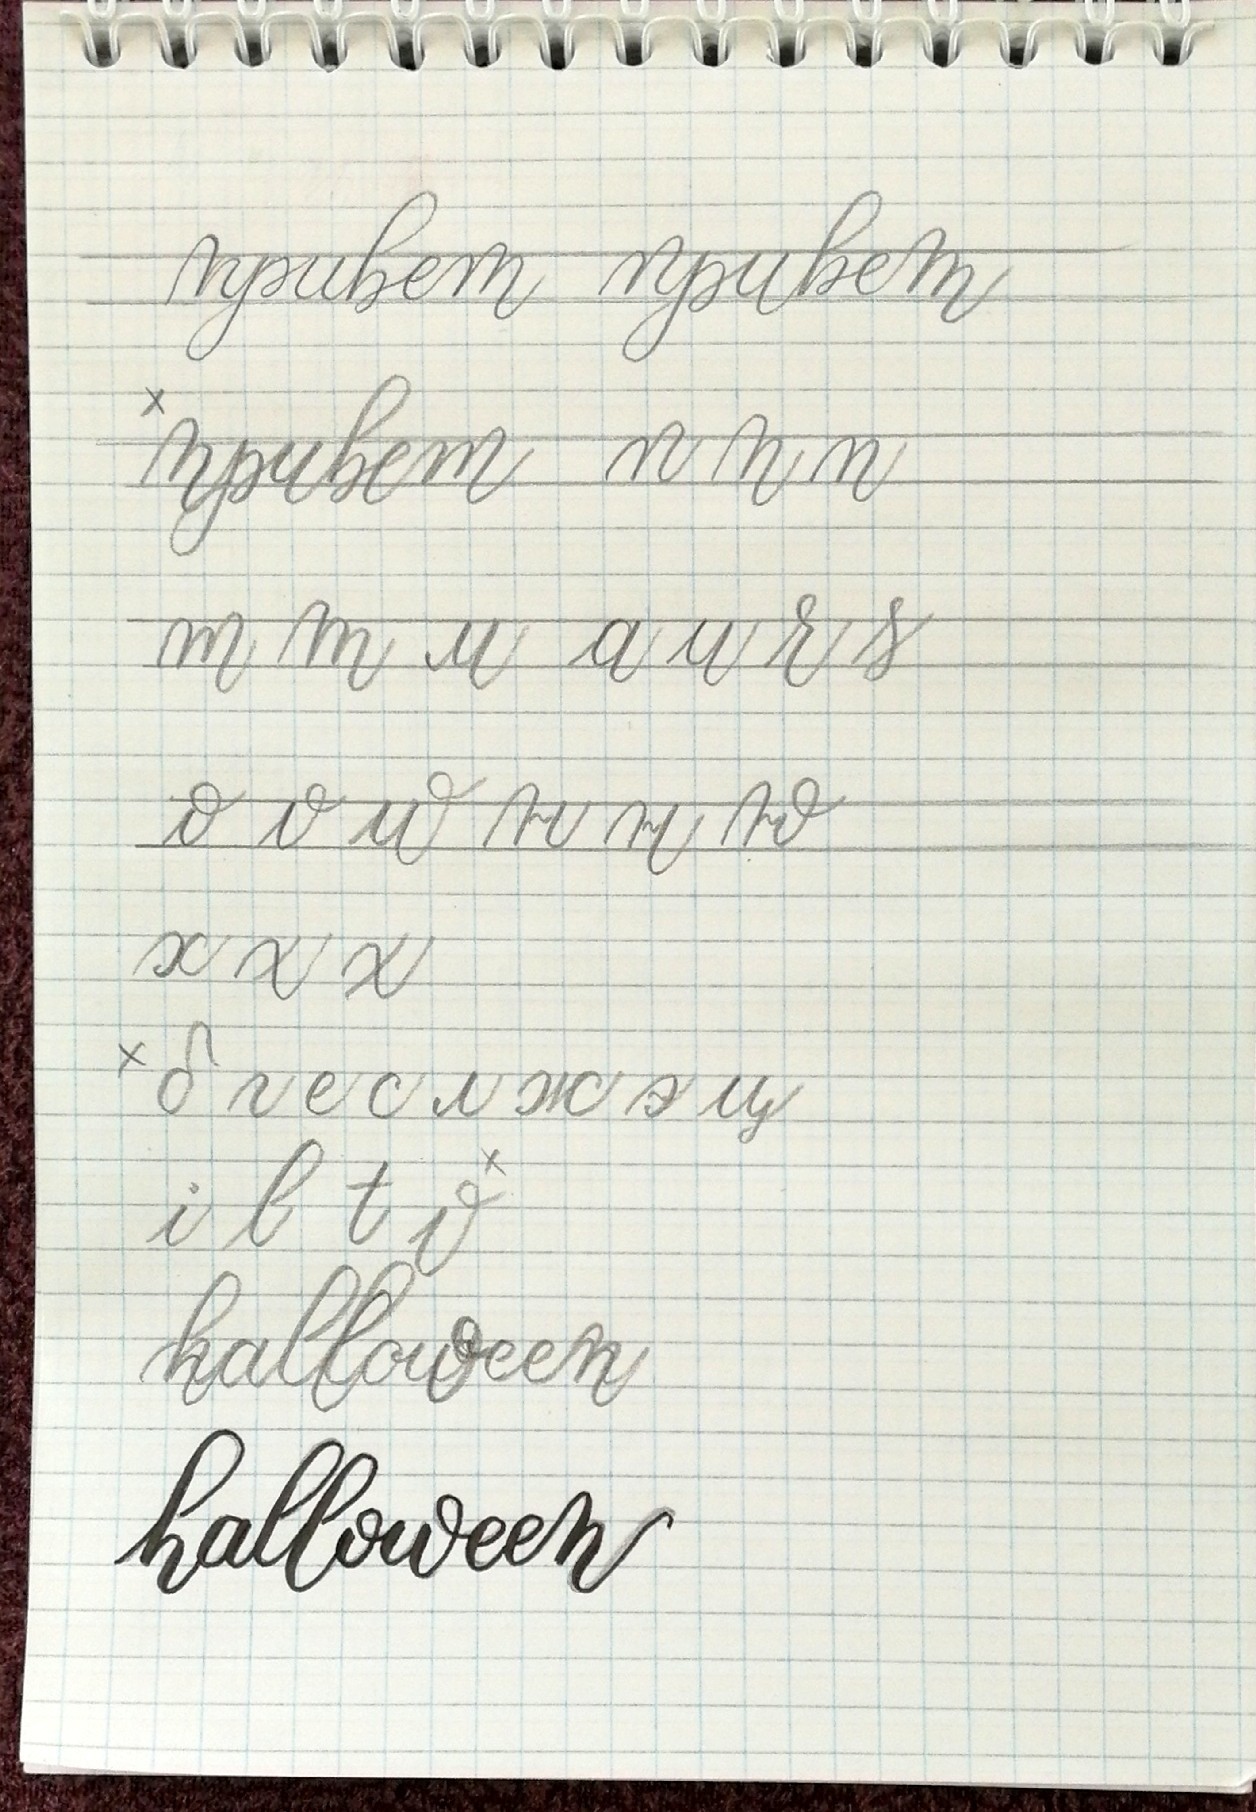 привет привет
× привет п п п
т т и а и я я
о о ш н н ю
х х х
× б г е с л ж э щ
i l t v ×
halloween
halloween